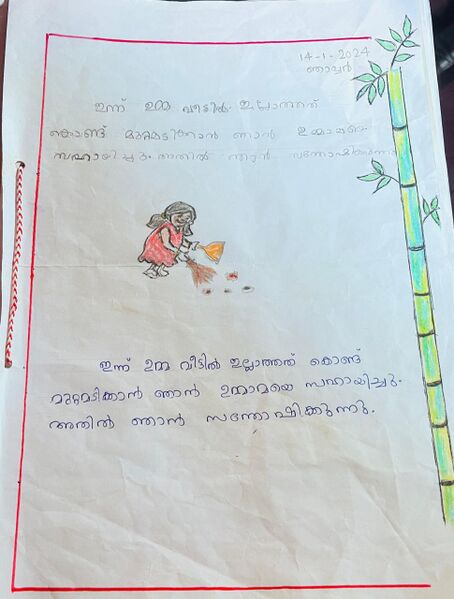 14-1-2024
ഞായർ
ഇന്ന് ഉമ്മ വീട്ടിൽ ഇല്ലാത്തത്
കൊണ്ട് മുറ്റമടിക്കാൻ ഞാൻ ഉമ്മാമയെ
സഹായിച്ചു. അതിൽ ഞാൻ സന്തോഷിക്കുന്നു
ഇന്ന് ഉമ്മ വീട്ടിൽ ഇല്ലാത്തത് കൊണ്ട്
മുറ്റമടിക്കാൻ ഞാൻ ഉമ്മാമയെ സഹായിച്ചു.
അതിൽ ഞാൻ സന്തോഷിക്കുന്നു.